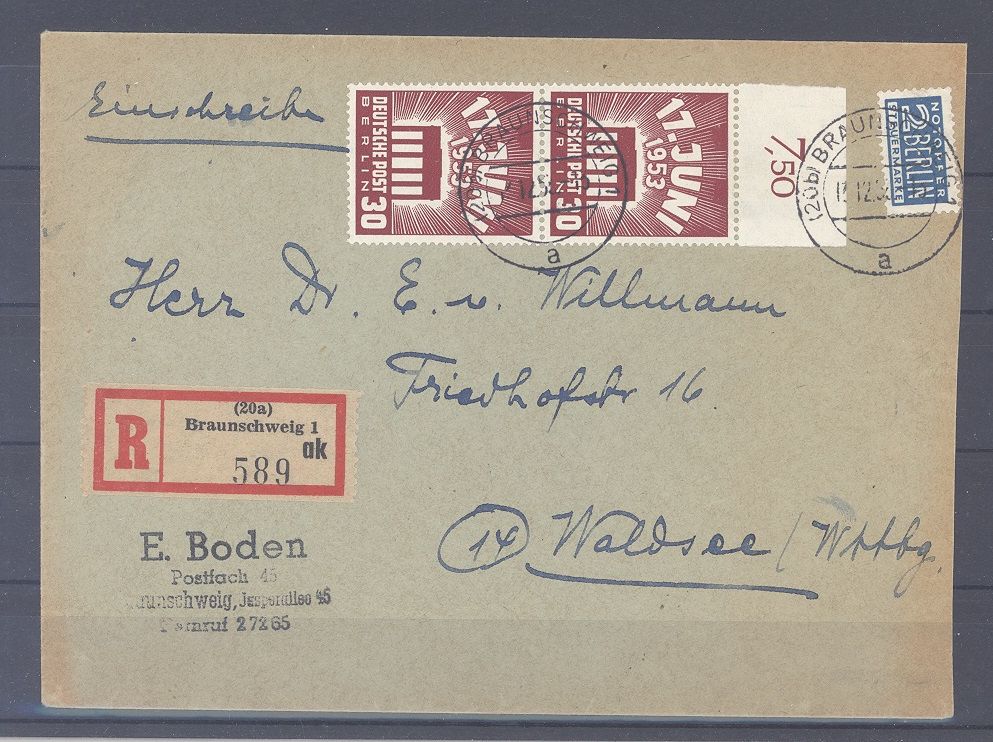 Einschreiben
DEUTSCHE POST
BERLIN
30
17. JUNI
1953
DEUTSCHE POST
BERLIN
30
17. JUNI
1953
7,50
NOTOPFER
2 BERLIN
STEUERMARKE
(20b) BRAUNSCHWEIG
a
(20b) BRAUNSCHWEIG
a
Herr Dr. E. v. Willmann
Friedhofstr 16
14 Waldsee / Wttbg.
R
(20a)
Braunschweig 1
ak
589
E. Boden
Postfach 45
Braunschweig, Jasperallee 45
Fernruf 27265